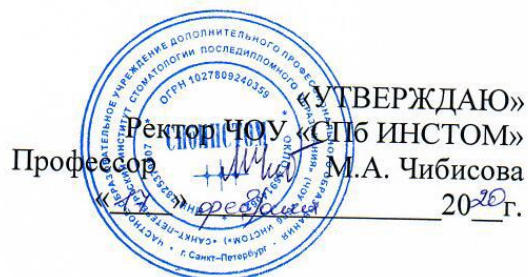 «УТВЕРЖДАЮ»
Ректор ЧОУ «СПб ИНСТОМ»
Профессор М.А. Чибисова
«17» февраля 2020 г.
ЧАСТНОЕ ОБРАЗОВАТЕЛЬНОЕ УЧРЕЖДЕНИЕ ДОПОЛНИТЕЛЬНОГО ПРОФЕССИОНАЛЬНОГО ОБРАЗОВАНИЯ
ИНСТИТУТ СТОМАТОЛОГИИ ПОСЛЕДИПЛОМНОГО
ОГРН 1027809240359
г. Санкт-Петербург